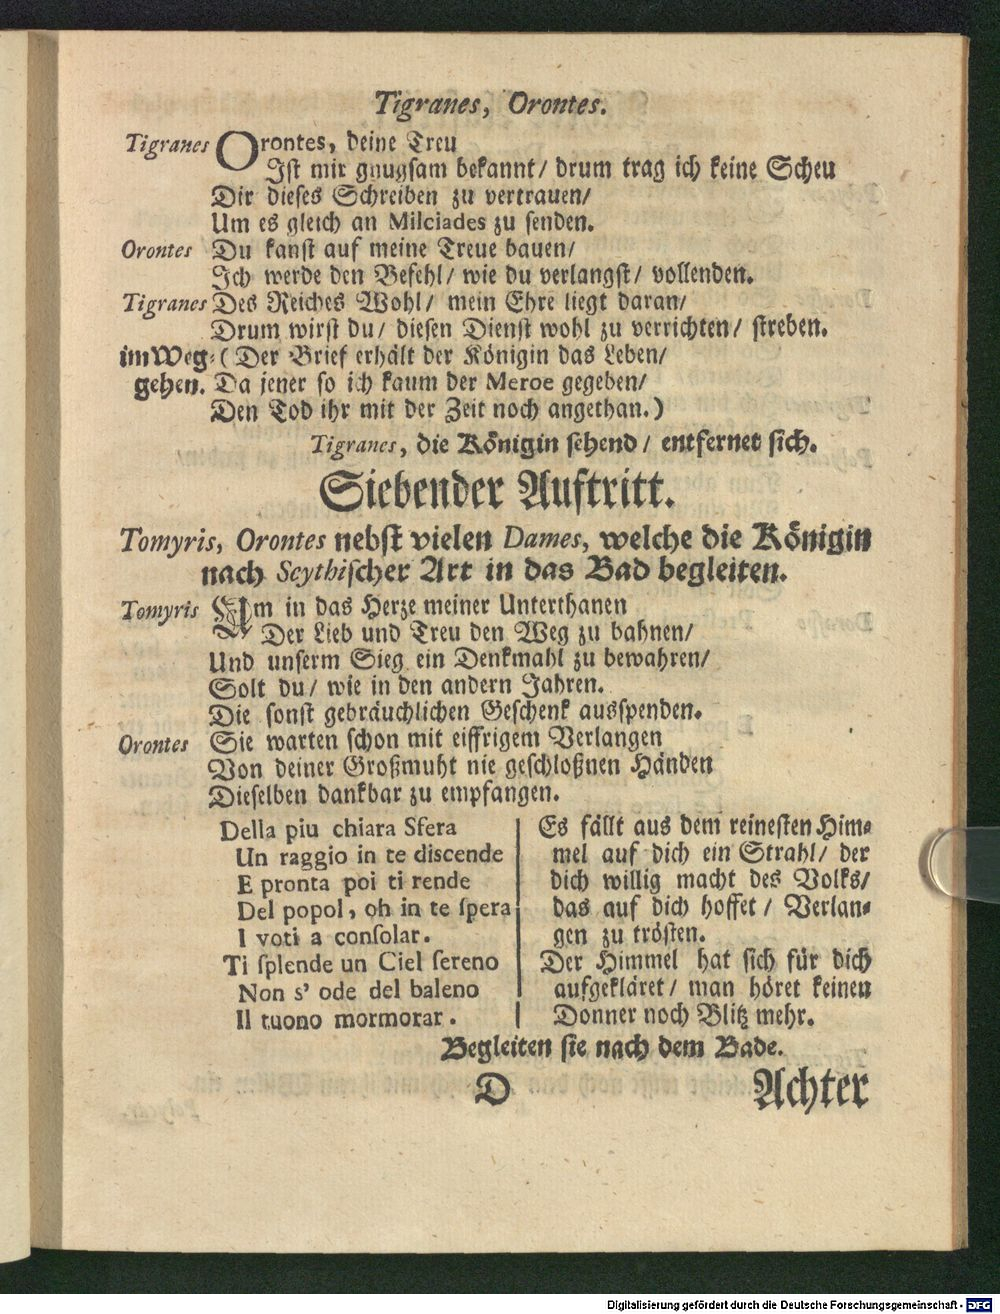 Tigranes, Orontes.
Tigranes Orontes, deine Treu
Ist mir gnugsam bekannt/ drum trag ich keine Scheu
Dir dieses Schreiben zu vertrauen/
Um es gleich an Milciades zu senden.
Orontes Du kanst auf meine Treue bauen/
Ich werde den Befehl/ wie du verlangst/ vollenden.
Tigranes Des Reiches Wohl/ mein Ehre liegt daran/
Drum wirst du/ diesen Dienst wohl zu verrichten/ streben.
im Weg- (Der Brief erhält der Königin das Leben/
gehen. Da jener so ich kaum der Meroe gegeben/
Den Tod ihr mit der Zeit noch angethan.)
Tigranes, die Königin sehend/ entfernet sich.
Siebender Auftritt.
Tomyris, Orontes nebst vielen Dames, welche die Königin
nach Scythischer Art in das Bad begleiten.
Tomyris Um in das Herze meiner Unterthanen
Der Lieb und Treu den Weg zu bahnen/
Und unserm Sieg ein Denkmahl zu bewahren/
Solt du/ wie in den andern Jahren.
Die sonst gebräuchlichen Geschenk ausspenden.
Orontes Sie warten schon mit eiffrigem Verlangen
Von deiner Großmuht nie geschloßnen Händen
Dieselben dankbar zu empfangen.
Della piu chiara Sfera
Un raggio in te discende
E pronta poi ti rende
Del popol, oh in te spera
I voti a consolar.
Ti splende un Ciel sereno
Non s' ode del baleno
Il tuono mormorar.
Es fällt aus dem reinesten Him-
mel auf dich ein Strahl/ der
dich willig macht des Volks/
das auf dich hoffet/ Verlan-
gen zu trösten.
Der Himmel hat sich für dich
aufgekläret/ man höret keinen
Donner noch Blitz mehr.
Begleiten sie nach dem Bade.
D Achter
Digitalisierung gefördert durch die Deutsche Forschungsgemeinschaft - DFG